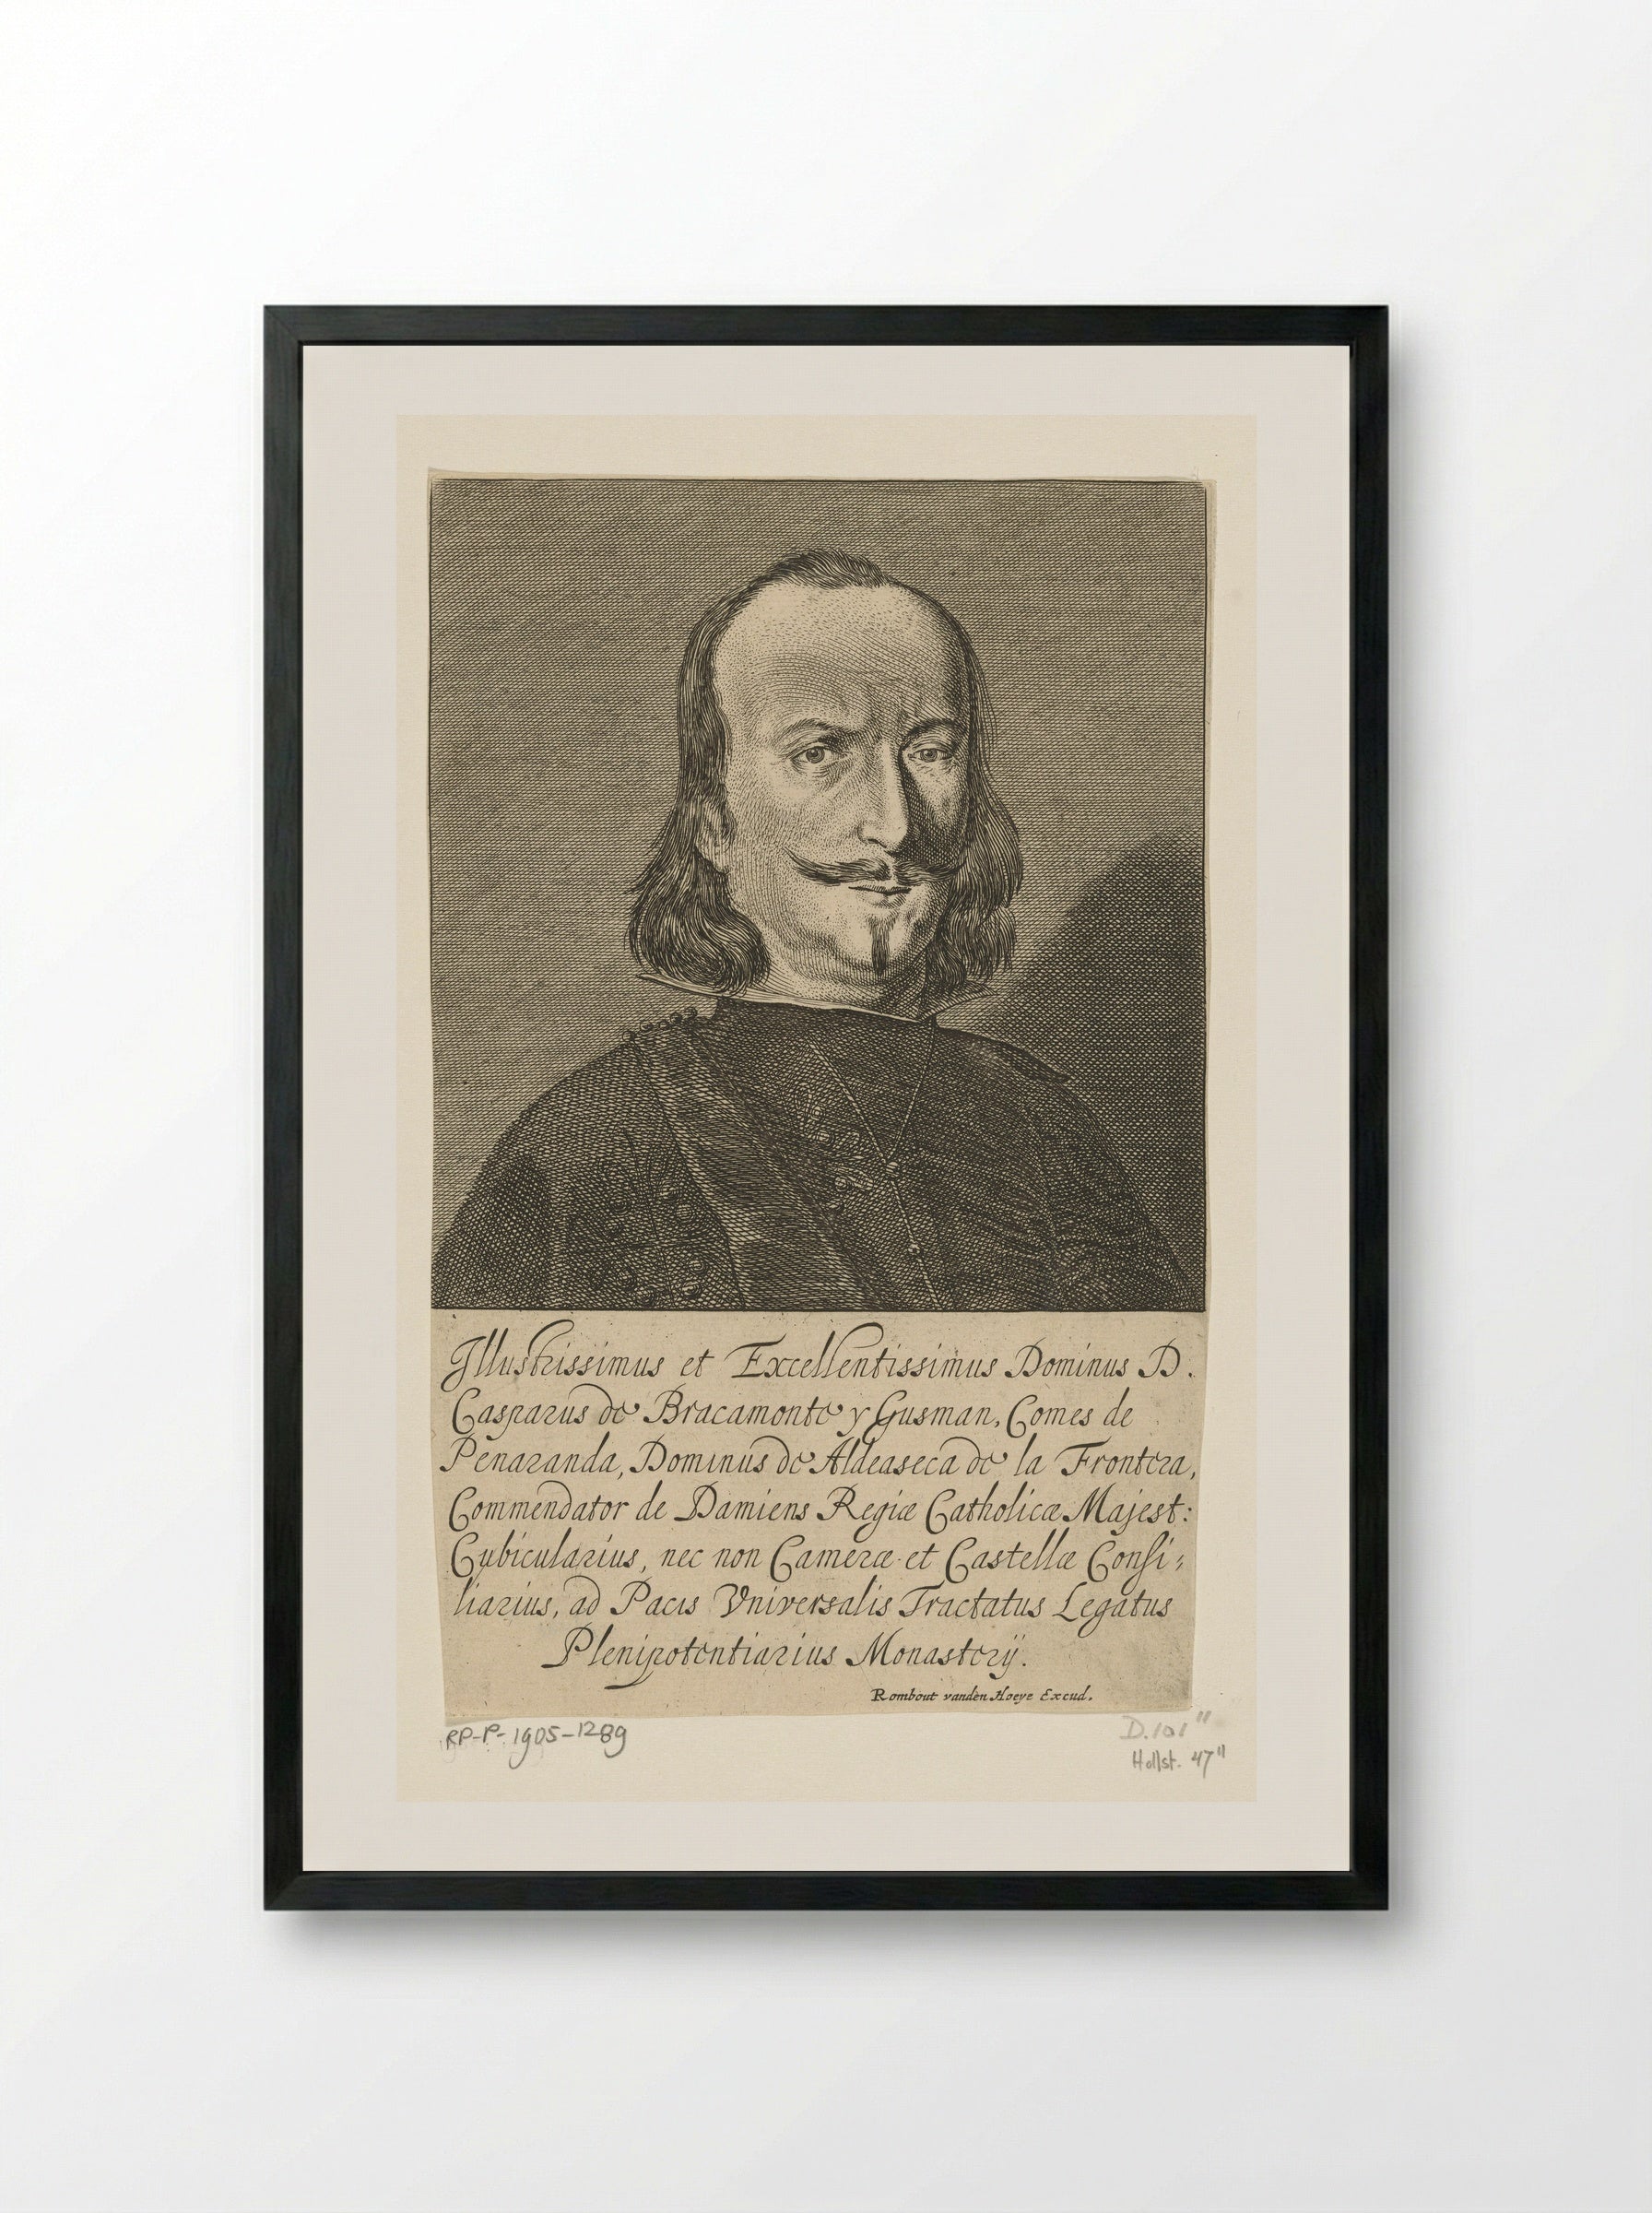 Illustrissimus et Excellentissimus Dominus D.
Casparus de Bracamonte y Gusman, Comes de
Penaranda, Dominus de Aldeaseca de la Frontera,
Commendator de Damiens Regiæ Catholicæ Majest:
Cubicularius, nec non Cameræ et Castellæ Consi;
liarius, ad Pacis Vniversalis Tractatus Legatus
Plenipotentiarius Monasterÿ.
Rombout vanden Hoeye Excud.
RP-P-1905-1289
D.101"
Hollst. 47"